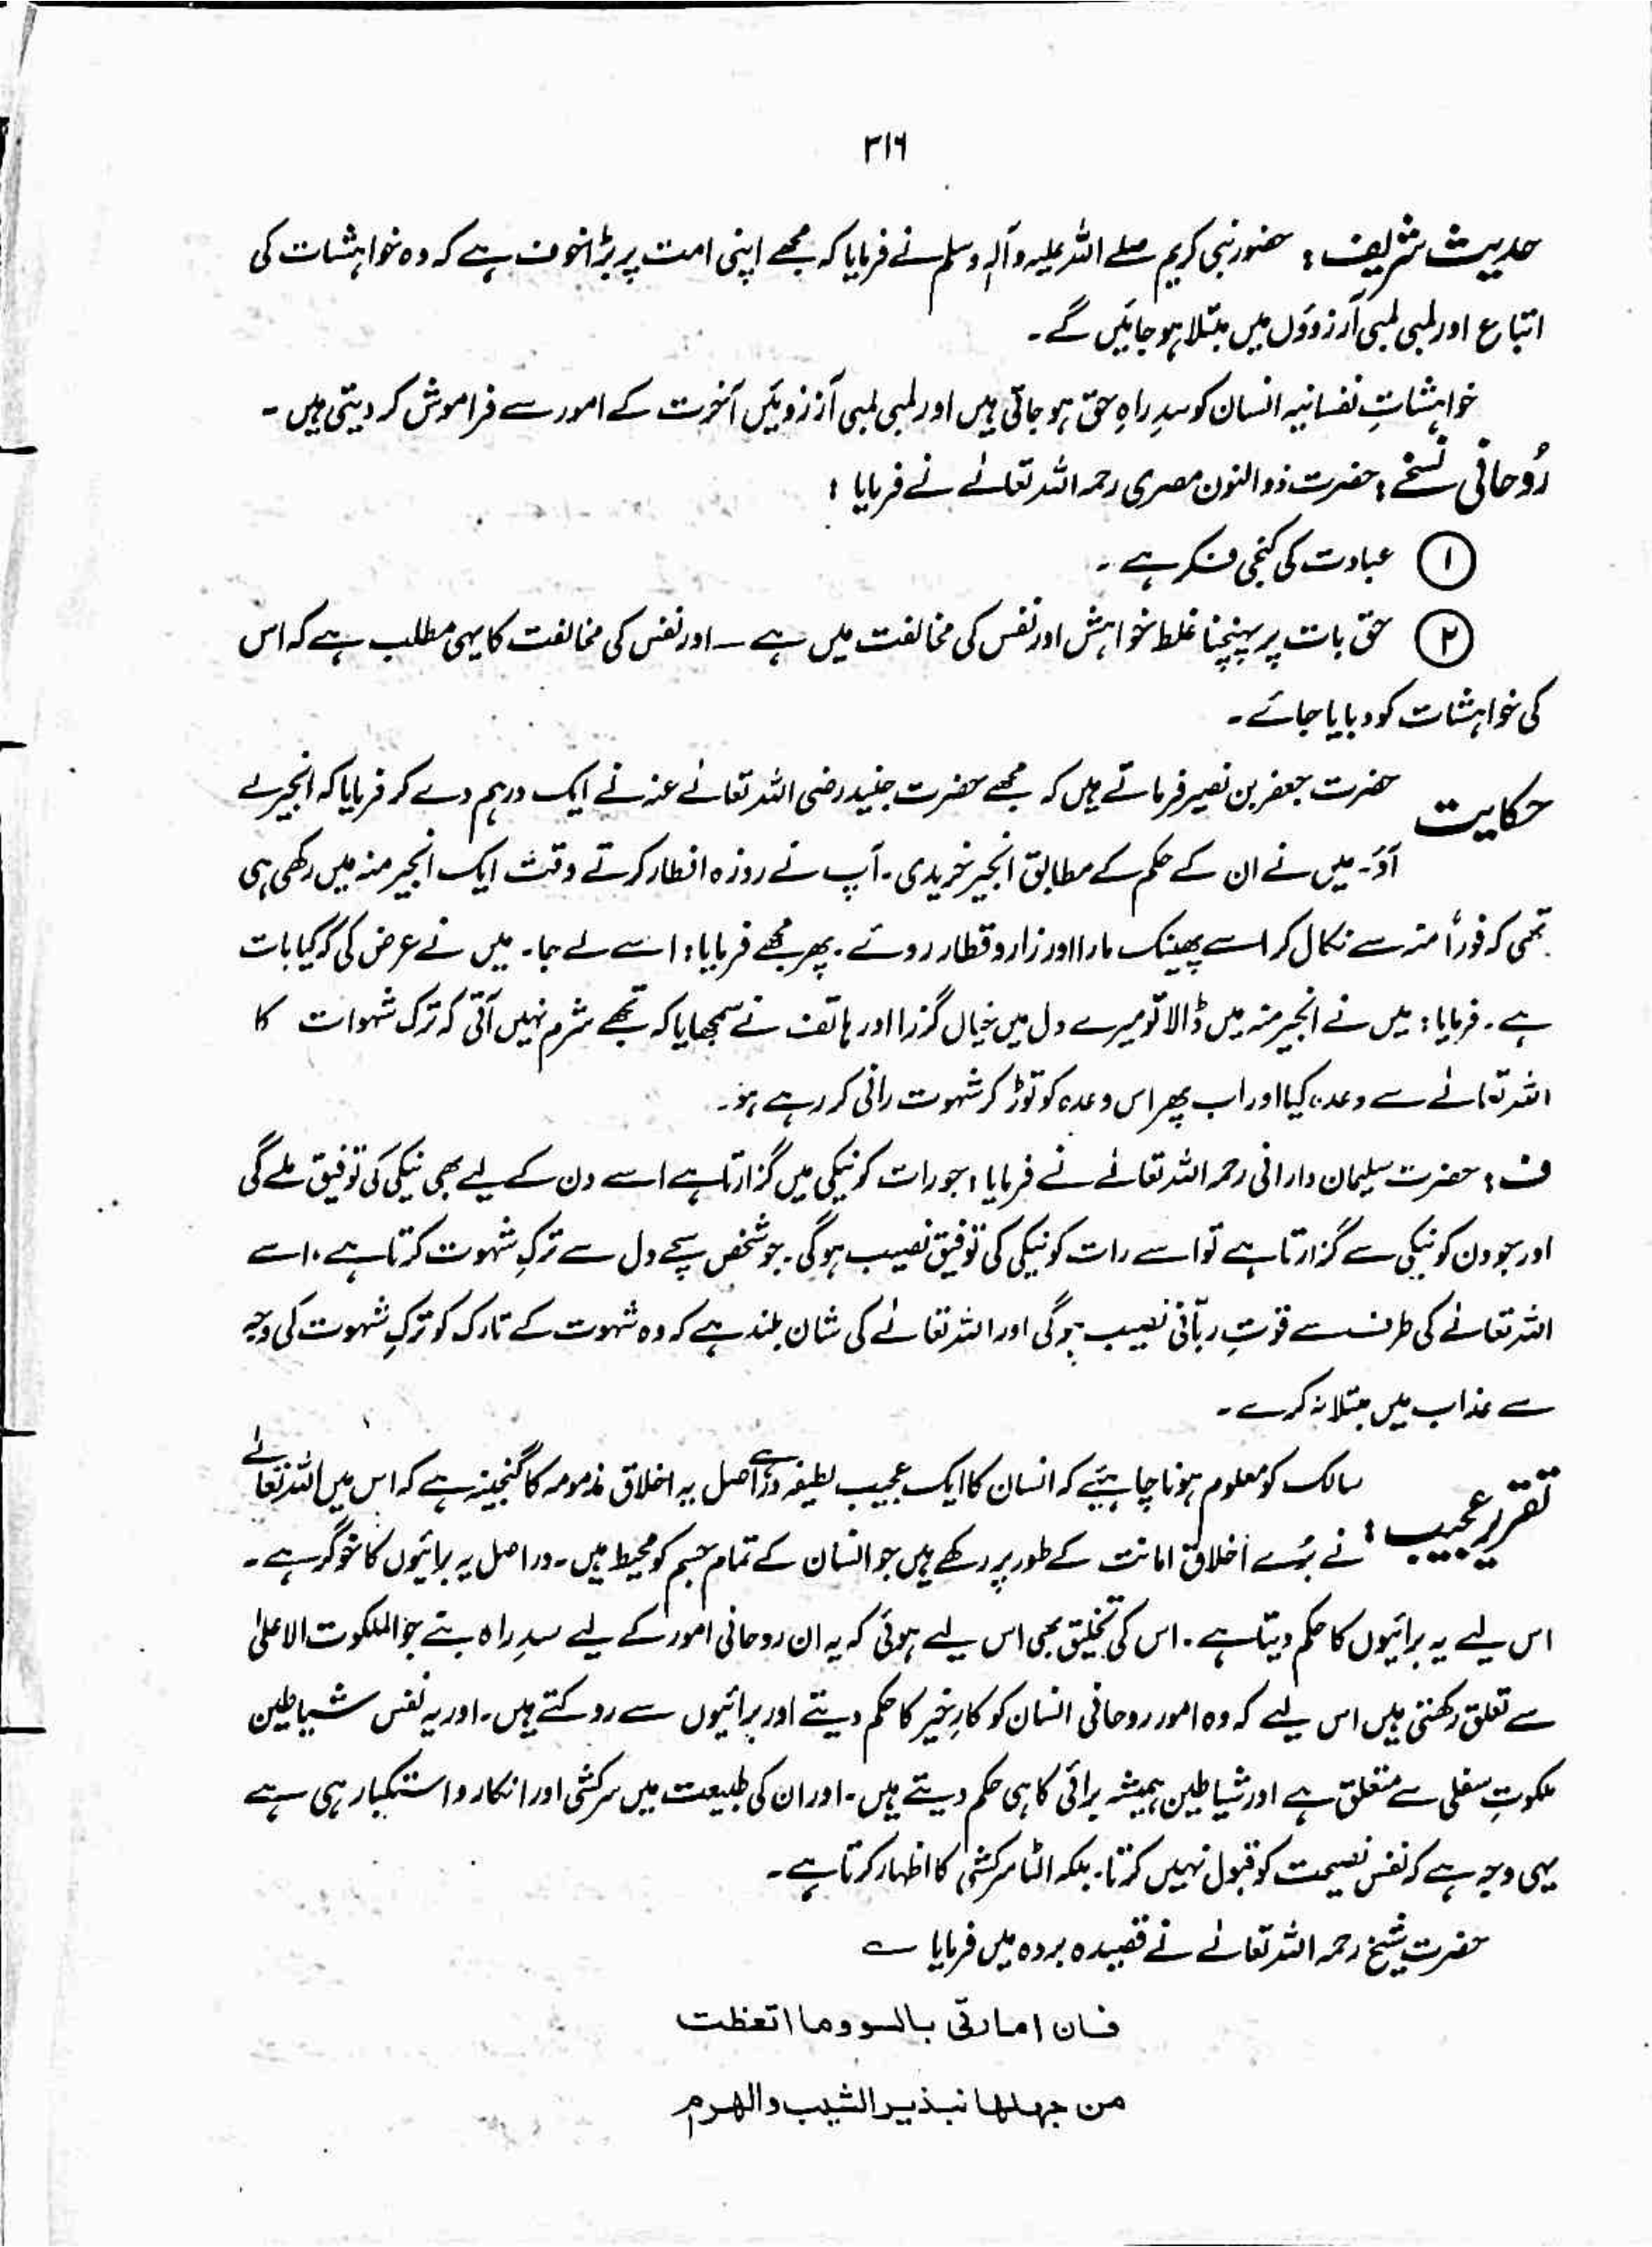 ۳۱۶
حدیث شریف: حضور نبی کریم صلے اللہ علیہ وآلہ وسلم نے فرمایا کہ مجھے اپنی امت پر بڑا خوف ہے کہ وہ خواہشات کی
اتباع اور لمبی لمبی آرزوؤں میں مبتلا ہو جائیں گے۔
خواہشاتِ نفسانیہ انسان کو سدِ راہِ حق ہو جاتی ہیں اور لمبی لمبی آرزوئیں آخرت کے امور سے فراموش کر دیتی ہیں۔
رُوحانی نسخے: حضرت ذوالنون مصری رحمہ اللہ تعالےٰ نے فرمایا :
① عبادت کی کنجی فکر ہے۔
② حق بات پر پہنچنا غلط خواہش اور نفس کی مخالفت میں ہے ــ اور نفس کی مخالفت کا یہی مطلب ہے کہ اس
کی خواہشات کو دبایا جائے۔
حکایت حضرت جعفر بن نصیر فرماتے ہیں کہ مجھے حضرت جنید رضی اللہ تعالےٰ عنہ نے ایک درہم دے کر فرمایا کہ انجیر لے
آؤ۔ میں نے ان کے حکم کے مطابق انجیر خریدی۔ آپ نے روزہ افطار کرتے وقت ایک انجیر منہ میں رکھی ہی
تھی کہ فوراً منہ سے نکال کر اسے پھینک مارا اور زار و قطار روئے۔ پھر مجھے فرمایا: اسے لے جا۔ میں نے عرض کی کہ کیا بات
ہے۔ فرمایا: میں نے انجیر منہ میں ڈالا تو میرے دل میں خیال گزرا اور ہاتف نے سمجھایا کہ تجھے شرم نہیں آتی کہ ترک شہوات کا
اللہ تعالےٰ سے وعدہ کیا اور اب پھر اس وعدہ کو توڑ کر شہوت رانی کر رہے ہو۔
ف: حضرت سلیمان دارانی رحمہ اللہ تعالےٰ نے فرمایا: جو رات کو نیکی میں گزارتا ہے اسے دن کے لیے بھی نیکی کی توفیق ملے گی
اور جو دن کو نیکی سے گزارتا ہے تو اسے رات کو نیکی کی توفیق نصیب ہوگی۔ جو شخص سچے دل سے ترکِ شہوت کرتا ہے، اسے
اللہ تعالےٰ کی طرف سے قوتِ ربّانی نصیب ہوگی اور اللہ تعالےٰ کی شان بلند ہے کہ وہ شہوت کے تارک کو ترکِ شہوت کی وجہ
سے عذاب میں مبتلا نہ کرے۔
تقریر عجیب: سالک کو معلوم ہونا چاہیئے کہ انسان کا ایک عجیب لطیفہ ہے دراصل یہ اخلاق مذمومہ کا گنجینہ ہے کہ اس میں اللہ تعالےٰ
نے بُرے اخلاق امانت کے طور پر رکھے ہیں جو انسان کے تمام جسم کو محیط ہیں۔ دراصل یہ برائیوں کا خوگر ہے۔
اس لیے یہ برائیوں کا حکم دیتا ہے۔ اس کی تخلیق بھی اس لیے ہوئی کہ یہ ان روحانی امور کے لیے سدِ راہ بنے جو الملکوت الاعلیٰ
سے تعلق رکھتی ہیں اس لیے کہ وہ امور روحانی انسان کو کارِ خیر کا حکم دیتے اور برائیوں سے روکتے ہیں۔ اور یہ نفس شیاطین
ملکوتِ سفلی سے متعلق ہے اور شیاطین ہمیشہ برائی کا ہی حکم دیتے ہیں۔ اور ان کی طبیعت میں سرکشی اور انکار و استکبار ہی ہے
یہی وجہ ہے کہ نفس نصیحت کو قبول نہیں کرتا۔ بلکہ الٹا سرکشی کا اظہار کرتا ہے۔
حضرت شیخ رحمہ اللہ تعالےٰ نے قصیدہ بردہ میں فرمایا ؎
فان امارتی بالسو وما اتعظت
من جهلها نبذیر الشیب والهرم